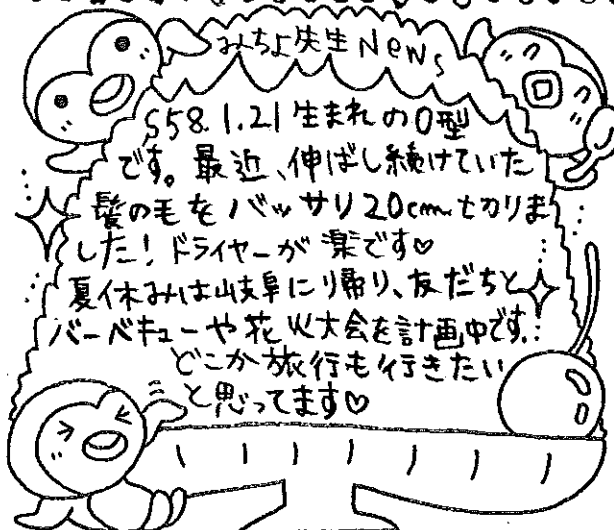 みちよ先生 NeWs
S58.1.21 生まれのO型
です。最近、伸ばし続けていた
髪の毛をバッサリ20cm切りま
した！ドライヤーが楽です♡
夏休みは岐阜に帰り、友だちと
バーベキューや花火大会を計画中です。
どこか旅行も行きたい
と思ってます♡